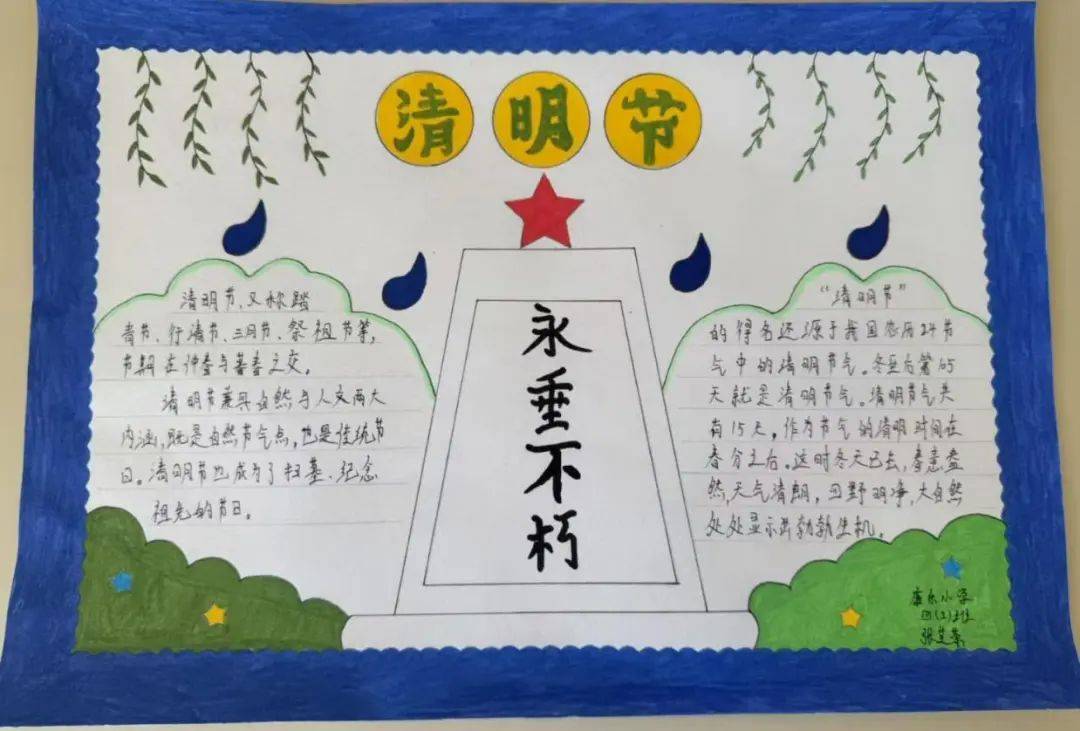 清明节
永垂不朽
清明节、又称踏
青节、行清节、三月节、祭祖节等,
节期在仲春与暮春之交。
清明节兼具自然与人文两大
内涵,既是自然节气点,也是传统节
日。清明节也成为了扫墓、纪念
祖先的节日。
“清明节”
的得名还源于我国农历24节
气中的清明节气。冬至后第105
天就是清明节气。清明节气共
有15天,作为节气的清明时间在
春分之后。这时冬天已去,春意盎
然,天气清朗,田野明净,大自然
处处显示出勃勃生机。
康乐小学
四(2)班
张芷